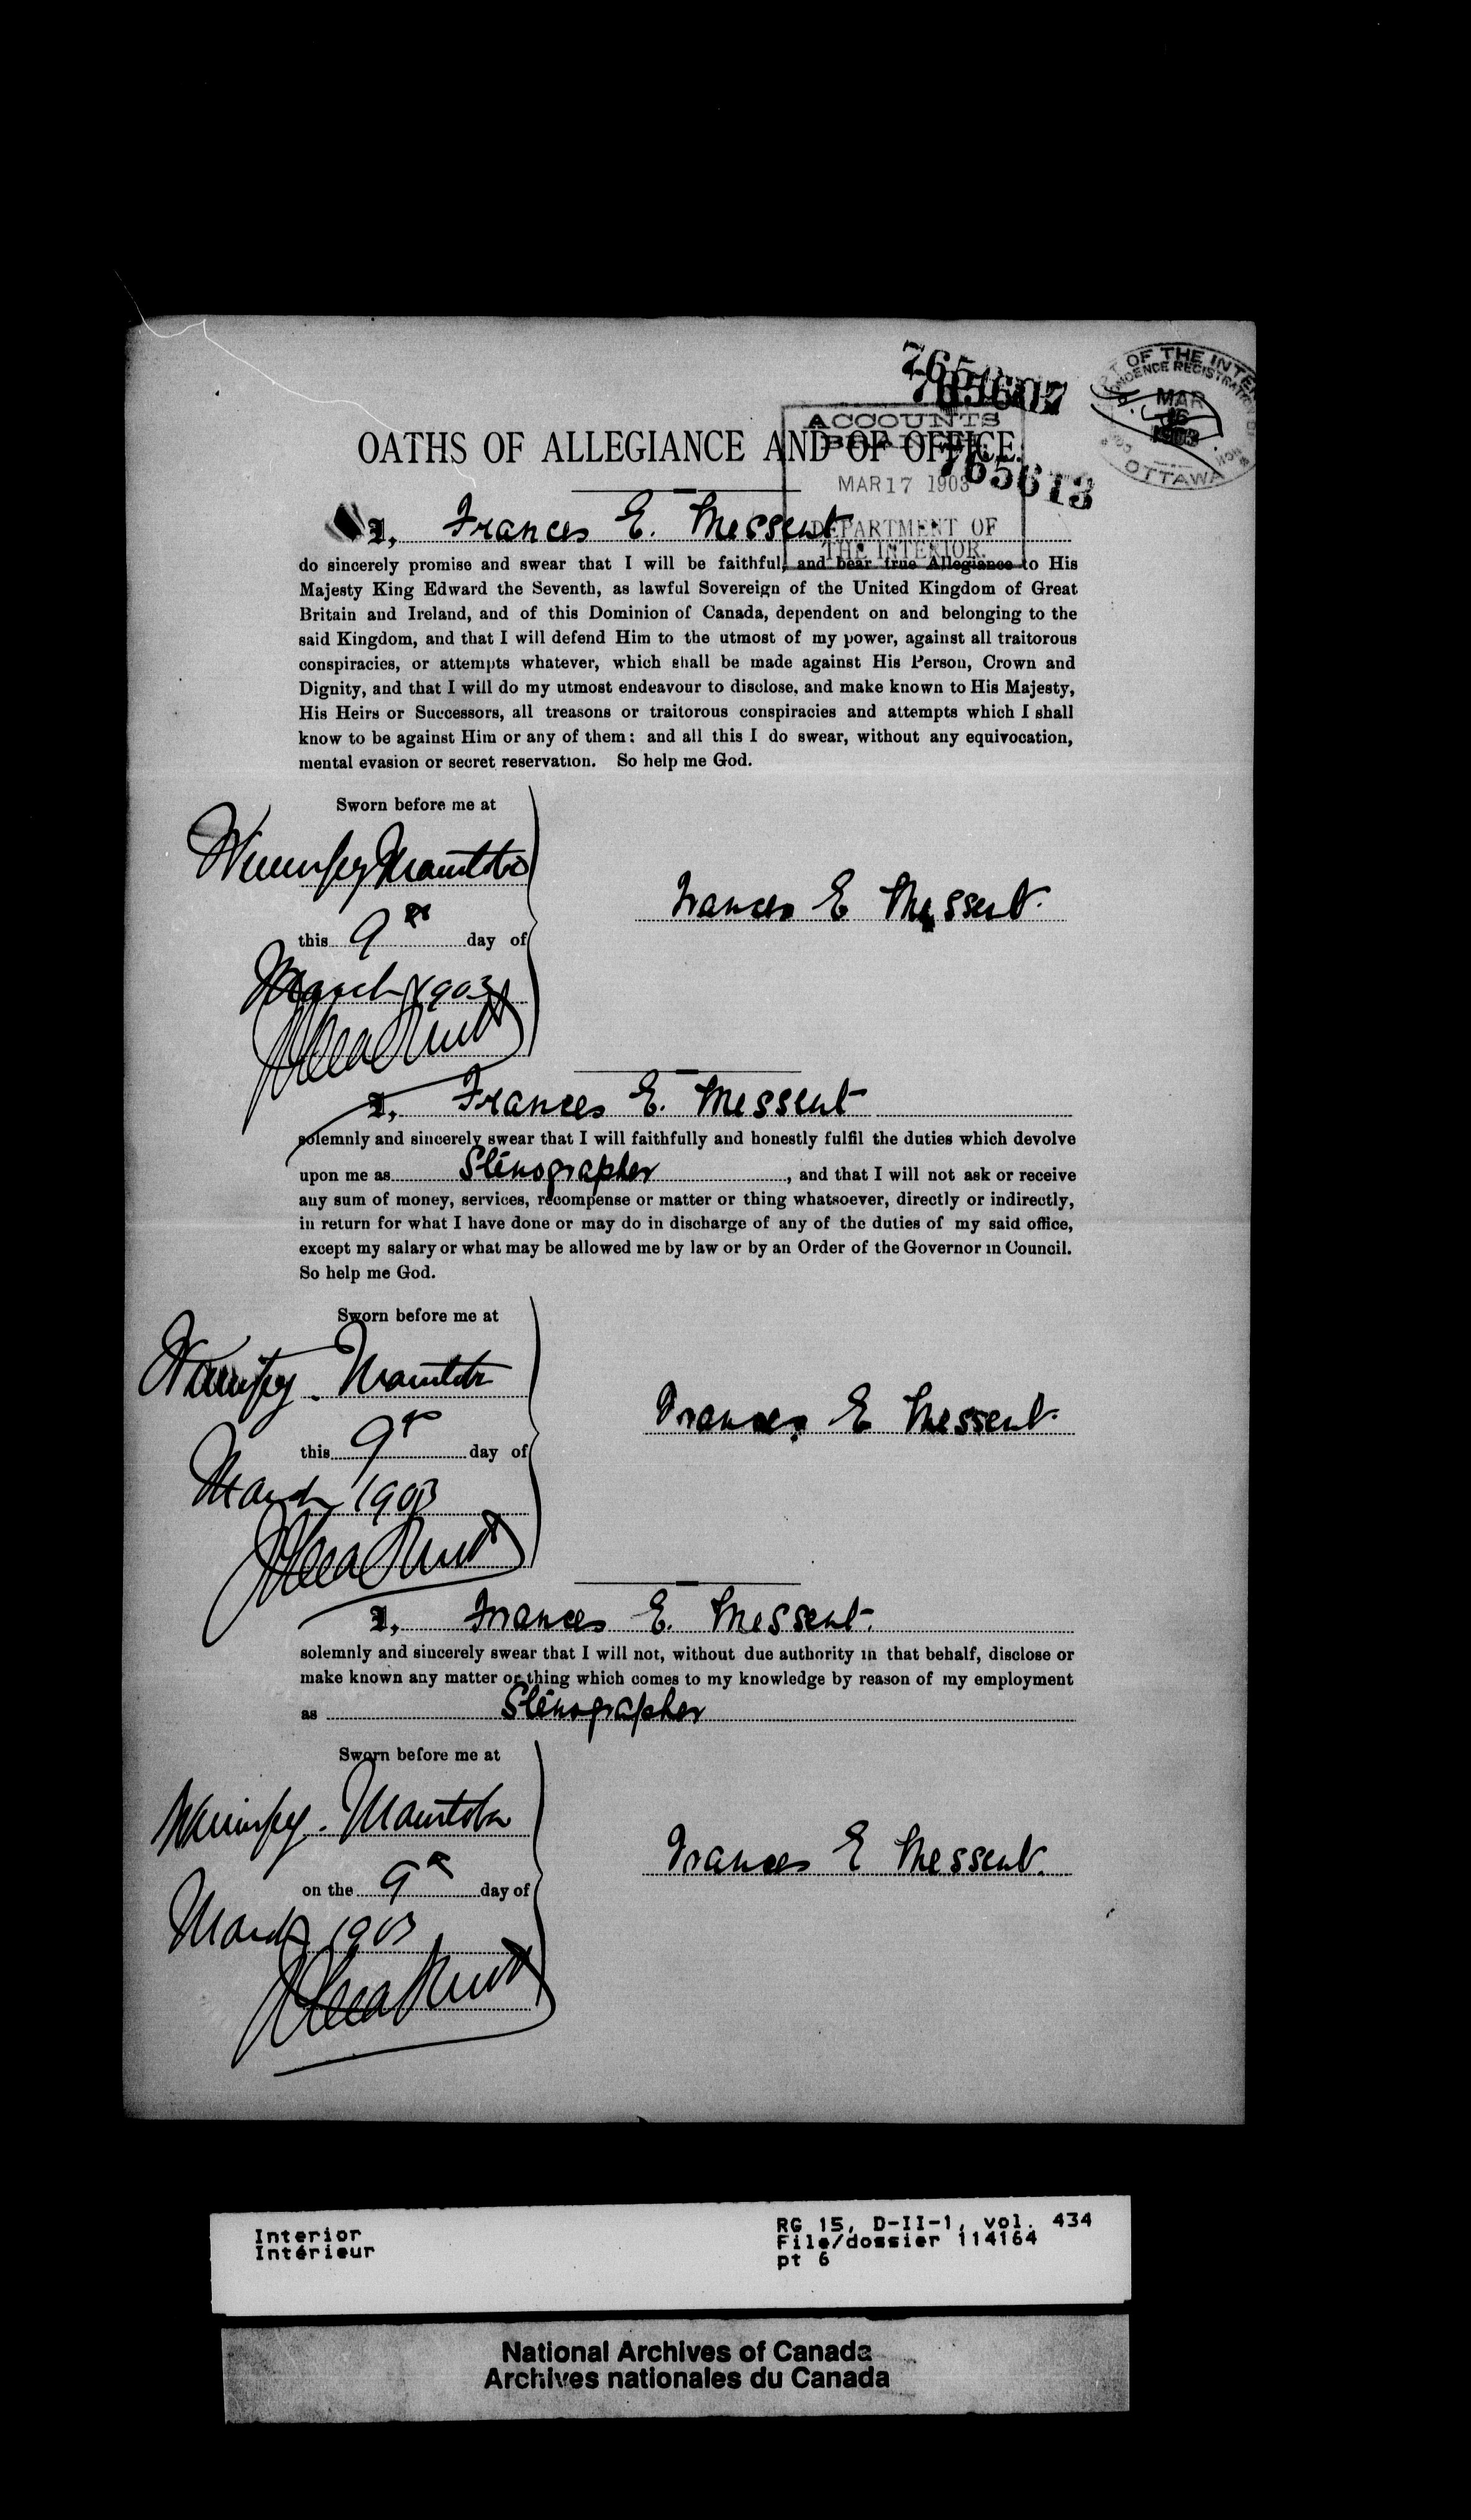 765607
DEPT OF THE INTERIOR
CORRESPONDENCE REGISTRATION
MAR
16
1903
OTTAWA
ACCOUNTS
BRANCH
OATHS OF ALLEGIANCE AND OF OFFICE.
765613
MAR 17 1903
DEPARTMENT OF
THE INTERIOR.
I, Frances E. Messent
do sincerely promise and swear that I will be faithful, and bear true Allegiance to His
Majesty King Edward the Seventh, as lawful Sovereign of the United Kingdom of Great
Britain and Ireland, and of this Dominion of Canada, dependent on and belonging to the
said Kingdom, and that I will defend Him to the utmost of my power, against all traitorous
conspiracies, or attempts whatever, which shall be made against His Person, Crown and
Dignity, and that I will do my utmost endeavour to disclose, and make known to His Majesty,
His Heirs or Successors, all treasons or traitorous conspiracies and attempts which I shall
know to be against Him or any of them: and all this I do swear, without any equivocation,
mental evasion or secret reservation. So help me God.
Sworn before me at
Winnipeg Manitoba
this 9th day of
March 1903
Frances E Messent.
I, Frances E. Messent
solemnly and sincerely swear that I will faithfully and honestly fulfil the duties which devolve
upon me as Stenographer, and that I will not ask or receive
any sum of money, services, recompense or matter or thing whatsoever, directly or indirectly,
in return for what I have done or may do in discharge of any of the duties of my said office,
except my salary or what may be allowed me by law or by an Order of the Governor in Council.
So help me God.
Sworn before me at
Winnipeg. Manitoba
this 9th day of
March 1903
Frances E Messent.
I, Frances E. Messent.
solemnly and sincerely swear that I will not, without due authority in that behalf, disclose or
make known any matter or thing which comes to my knowledge by reason of my employment
as Stenographer
Sworn before me at
Winnipeg. Manitoba
on the 9th day of
March 1903
Frances E Messent.
Interior
Intérieur
RG 15, D-II-1, vol. 434
File/dossier 114164
pt 6
National Archives of Canada
Archives nationales du Canada